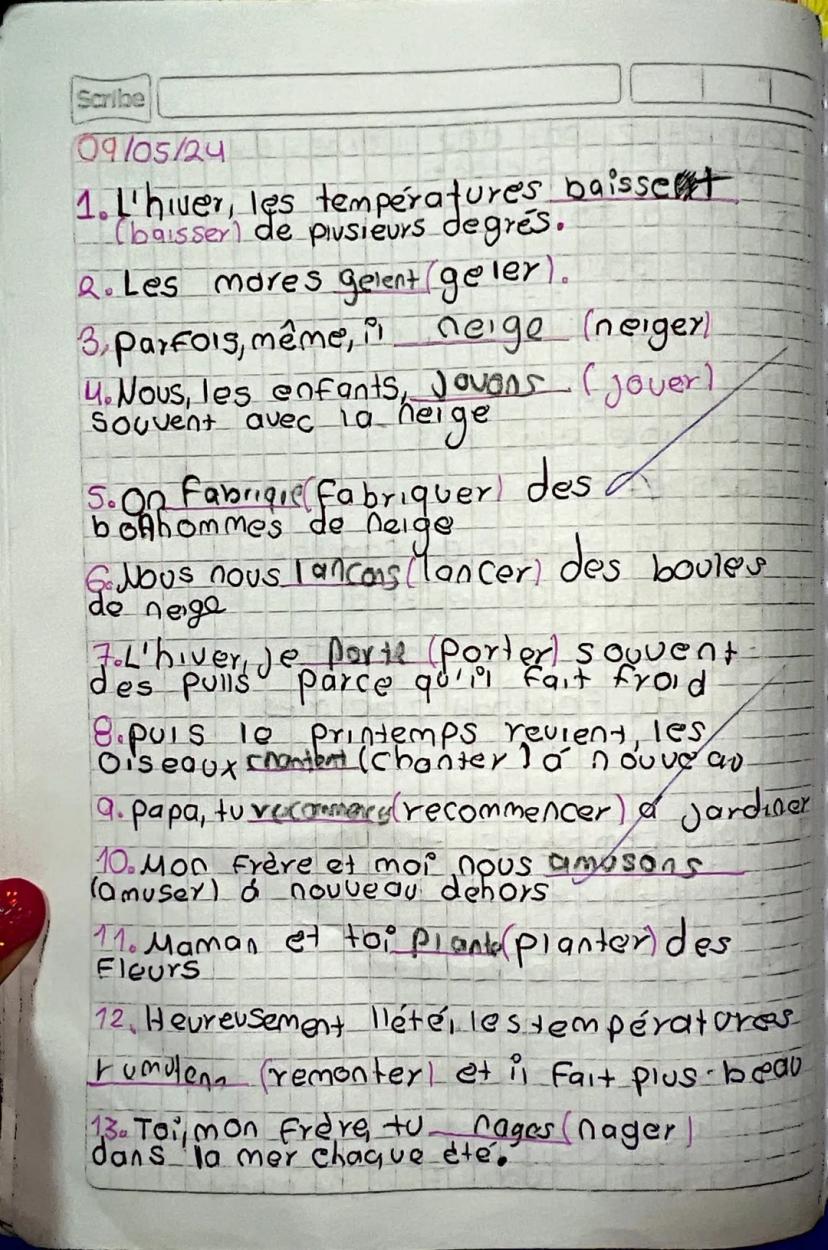 Scribe
09/05/24
1. L'hiver, les températures baissent
(baisser) de plusieurs degrés.
2. Les mares gelent (geler).
3, Parfois, même, il neige (neiger)
4. Nous, les enfants, jouons (jouer)
souvent avec la neige
5. On Fabrique (fabriquer) des
bonhommes de neige
6. Nous nous lancons (lancer) des boules
de neige
7. L'hiver, je porte (porter) souvent
des pulls parce qu'il fait froid
8. puis le printemps revient, les
oiseaux chantent (chanter) á nouveau
9. papa, tu (recommencer) á jardiner
10. Mon frère et moi nous amusons
(amuser) á nouveau dehors
11. Maman et toi (planter) des
Fleurs
12. Heureusement l'lété, les températures
(remonter) et il fait plus beau
13. Toi, mon frère, tu nages (nager)
dans la mer chaque été.